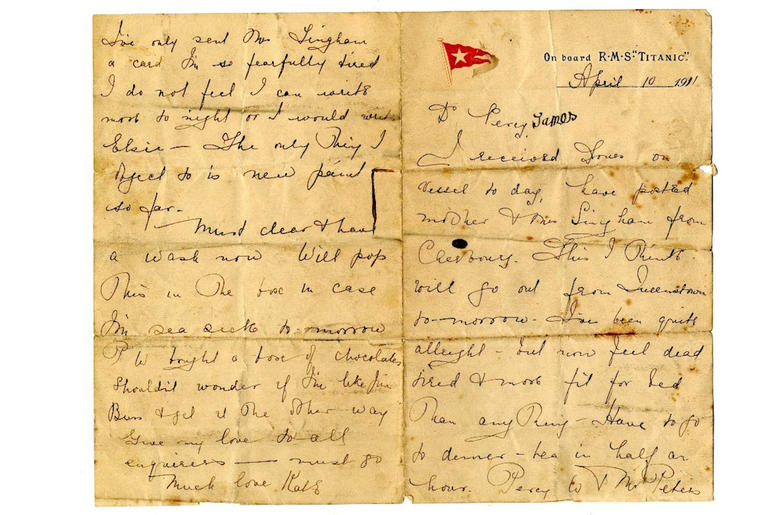 On board R·M·S "TITANIC".
April 10 1911
Dr Percy James
I received Yours on
vessel to day, have posted
mother & Mrs Lingham from
Cherbourg. This I think
will go out from Queenstown
to-morrow. I've been quite
allright - but now feel dead
tired & more fit for bed
Than any thing - Have to go
to dinner - tea in half an
hour. Percy W & Mr Peters
I've only sent Mrs Lingham
a card I'm so fearfully tired
I do not feel I can write
more to night or I would write
Elsie - The only Thing I
object to is new paint
so far -
Must clear & have
a wash now Will pop
This in The box in case
I'm sea sick to-morrow
P W bought a box of chocolates
Shouldn't wonder if I'm like Jim
Buss & get it The other way
Give my love to all
enquirers - must go
Much love Kate